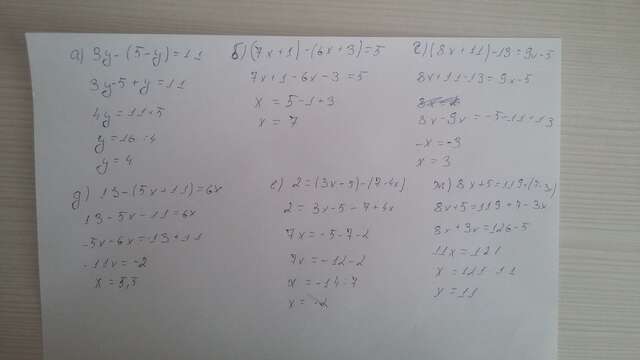 а) 3y-(5-y)=11
3y-5+y=11
4y=11+5
y=16:4
y=4
б) (7x+1)-(6x+3)=5
7x+1-6x-3=5
x=5-1+3
x=7
г) (8x+11)-13=9x-5
8x+11-13=9x-5
8x-9x=-5-11+13
-x=-3
x=3
д) 13-(5x+11)=6x
13-5x-11=6x
-5x-6x=13+11
-11x=-2
x=5,5
е) 2=(3x-5)-(7-4x)
2=3x-5-7+4x
7x=-5-7-2
7x=-12-2
x=-14:7
x=-2
ж) 8x+5=119+(7-3x)
8x+5=119+7-3x
8x+3x=126-5
11x=121
x=121:11
x=11